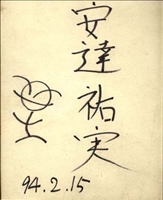 安達祐実
94.2.15